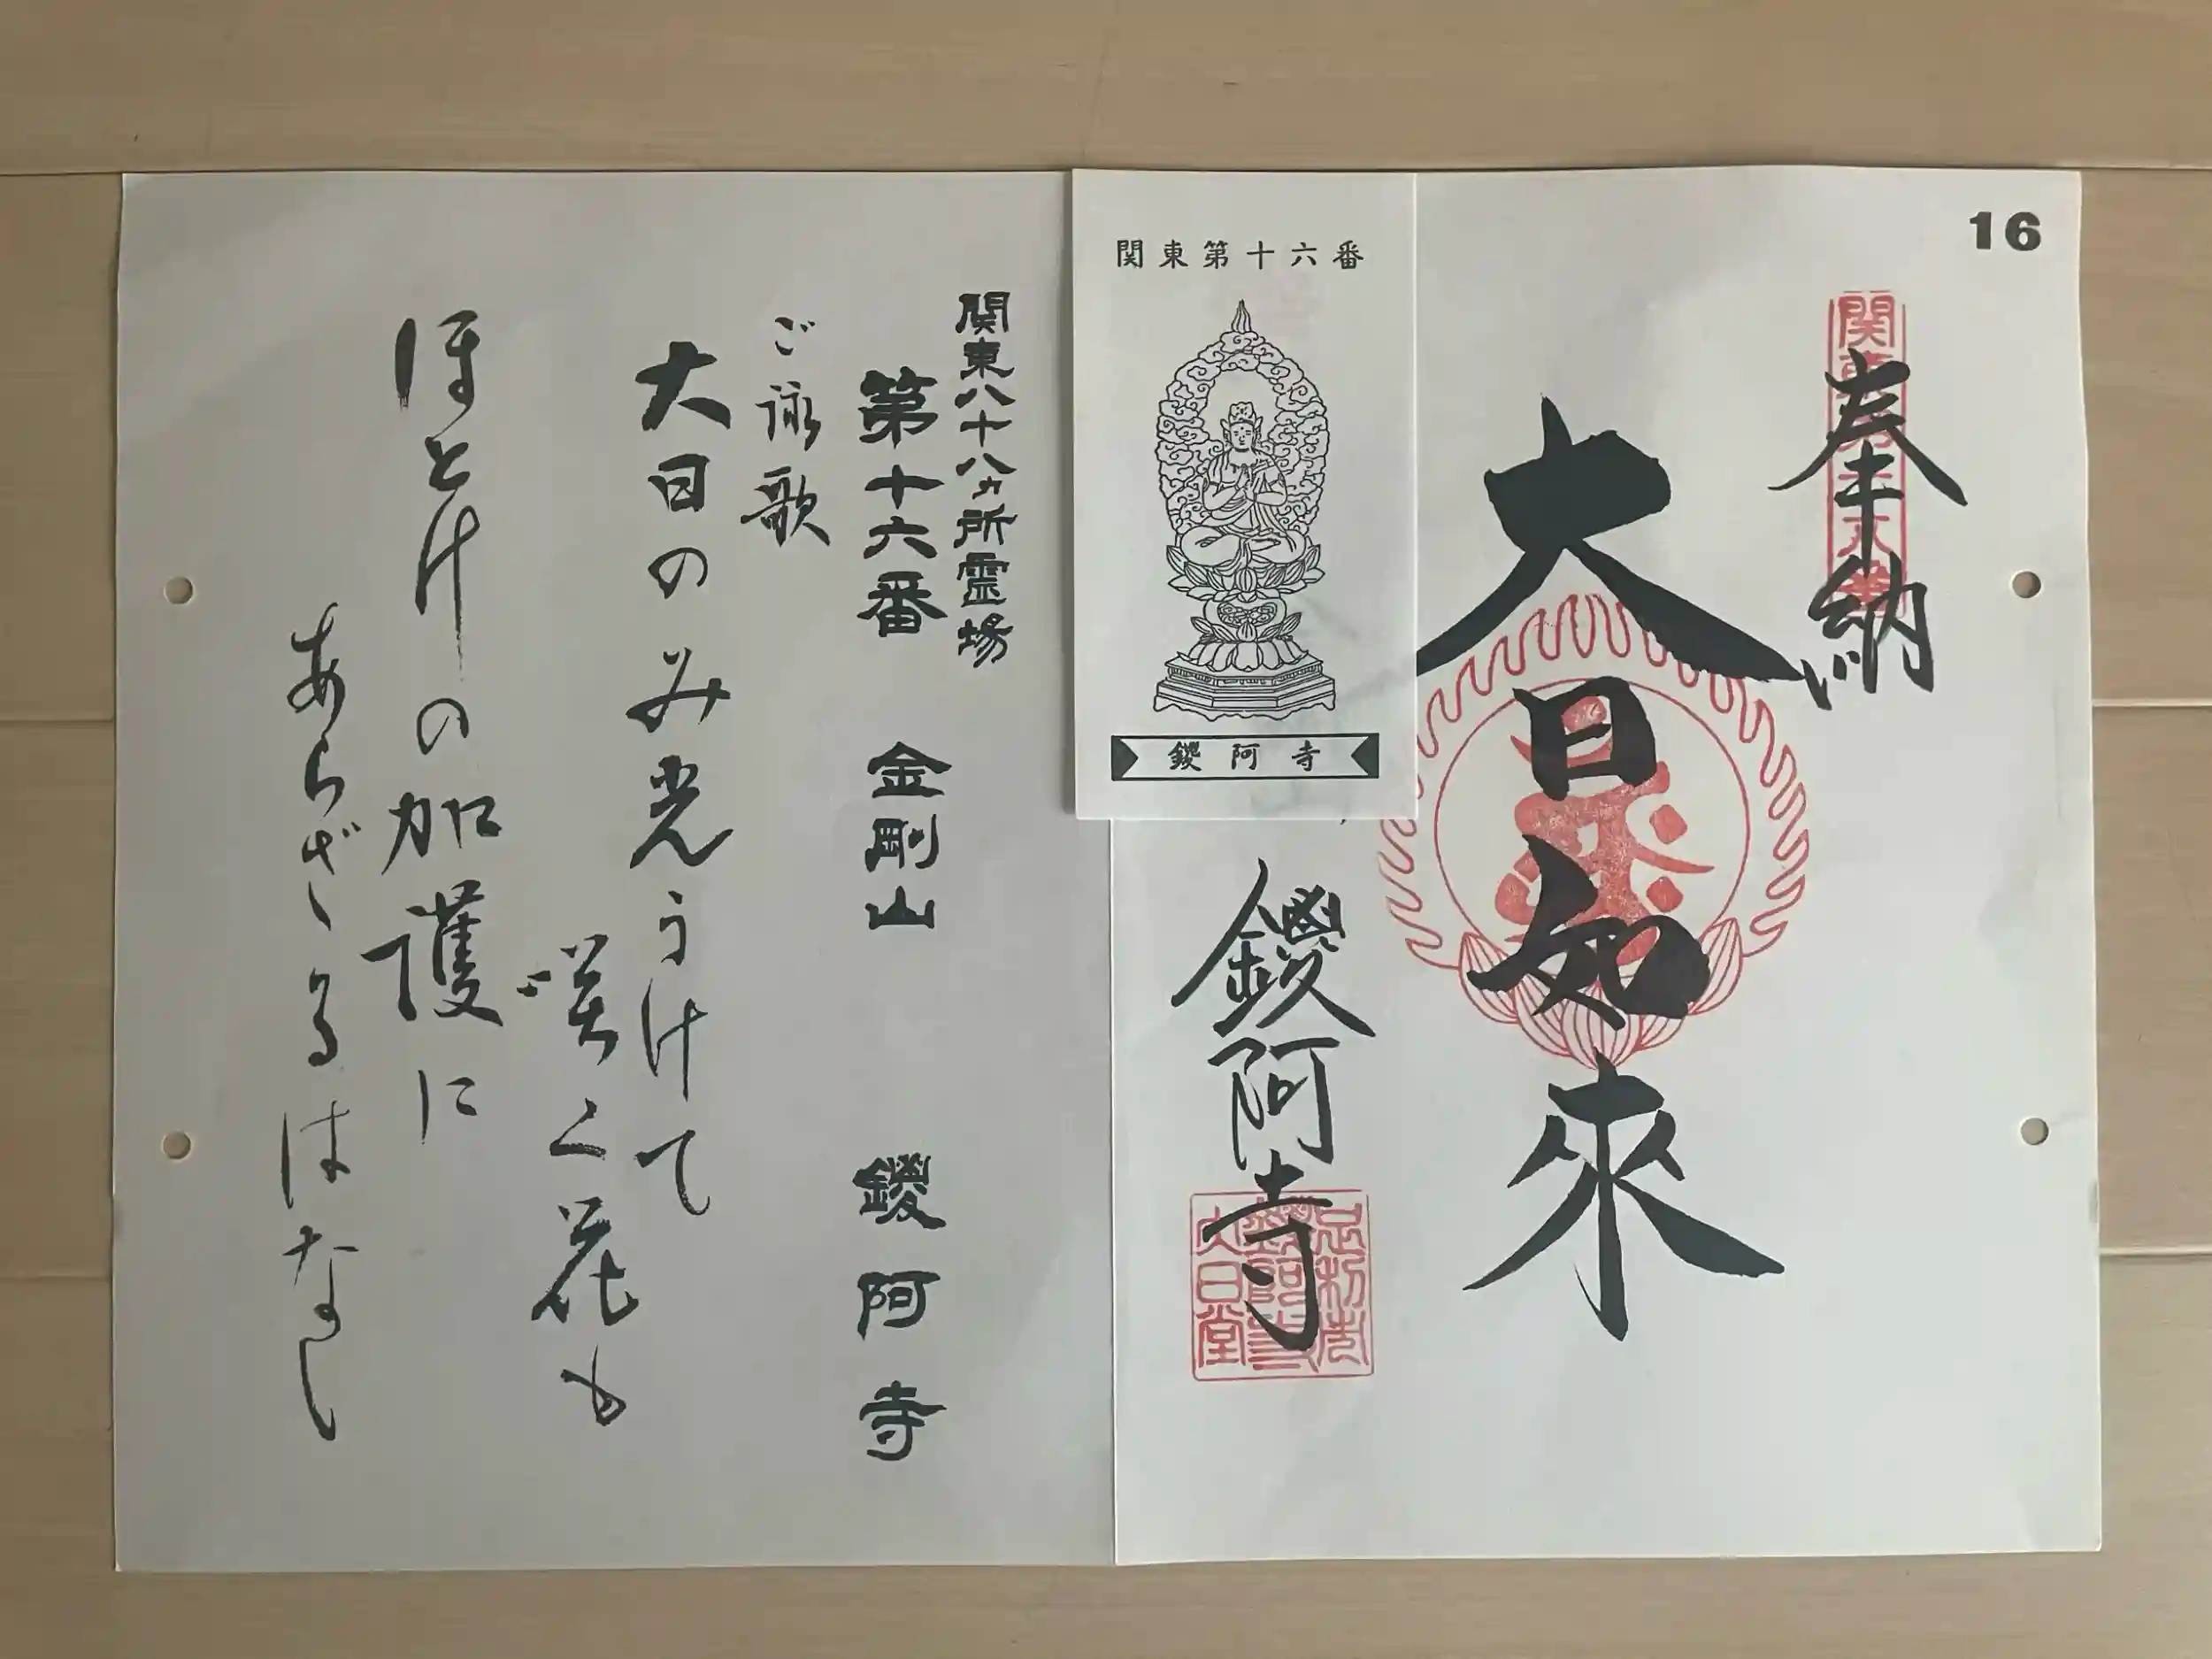 16
奉納
大日如來
鑁阿寺
足利市
鑁阿寺
大日堂
関東第十六番
鑁阿寺
関東八十八ヵ所霊場
第十六番 金剛山 鑁阿寺
ご詠歌
大日のみ光うけて
咲く花も
ほとけの加護に
あらざるはなし